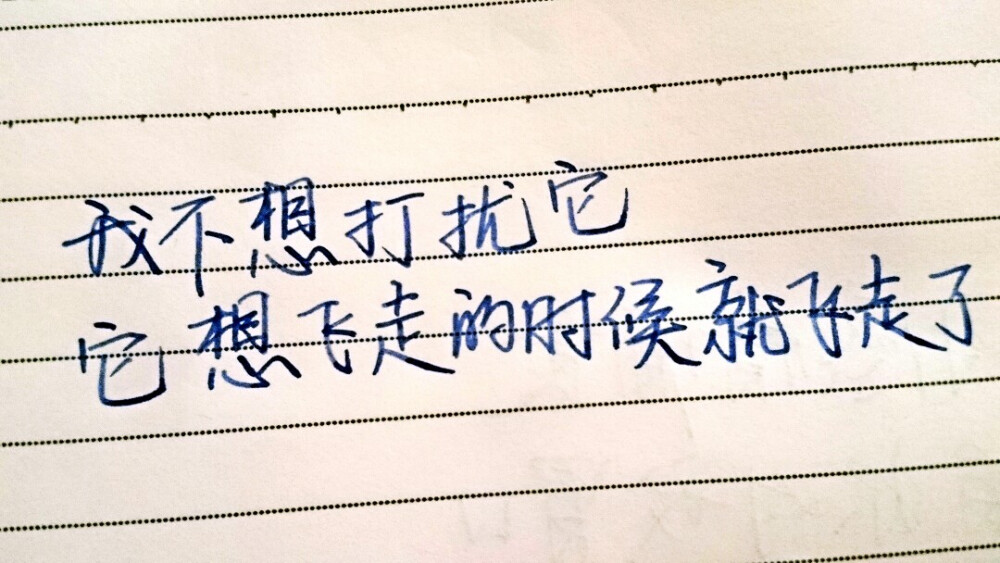 我不想打扰它
它想飞走的时候就飞走了